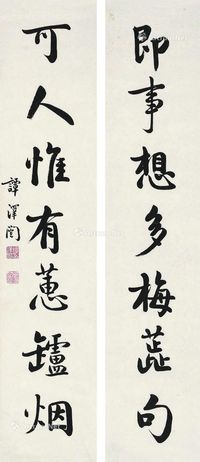 即事想多梅蕊句
可人惟有蕙罏烟
譚澤闓